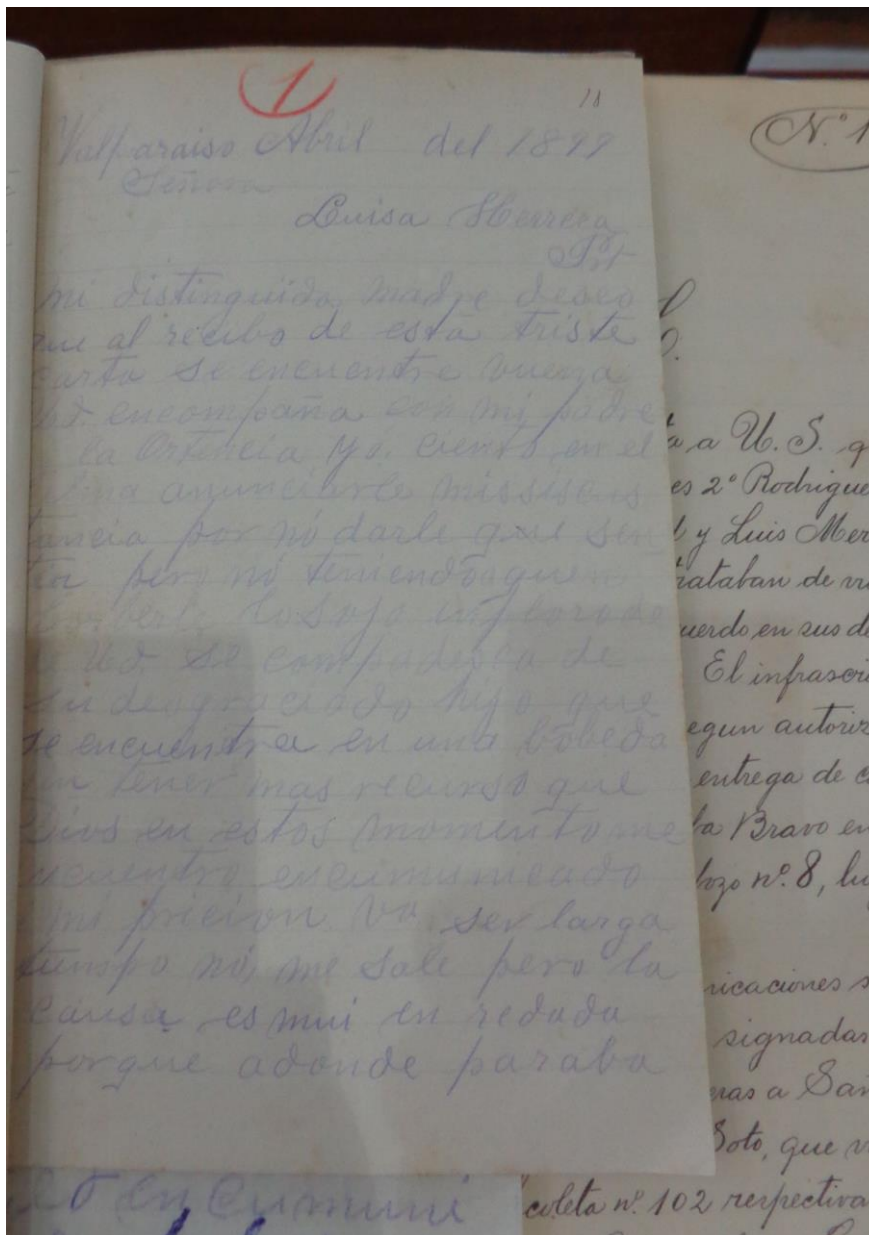 1
18
Valparaiso Abril del 1899
Señora
Luisa Herrera
mi distinguida madre deseo
que al recibo de esta triste
carta se encuentre vuena
Ud encompaña con mi padre
la Ortencia yo. ciento en el
anunciarle missiscus
tancia por nó darle que sen
tir pero nó teniendo aquen
los ojo imploro
a Ud se compadesca de
su desgraciado hijo que
se encuentra en una bobeda
sin tener mas recurso que
Dios en estos momento me
encuentro encumunicado
mi pricion va ser larga
tiempo nó, me sale pero la
causa es mui en redada
porque adonde paraba
encumuni
N.º 1
a U. S. q
es 2º Rodrigue
y Luis Mer
rataban de
uerdo en sus de
El infrascri
egun autoriz
entrega de c
Bravo en
bozo nº. 8, lu
nicaciones s
signadas
ras a San
Soto, que v
coleta nº. 102 respectiva